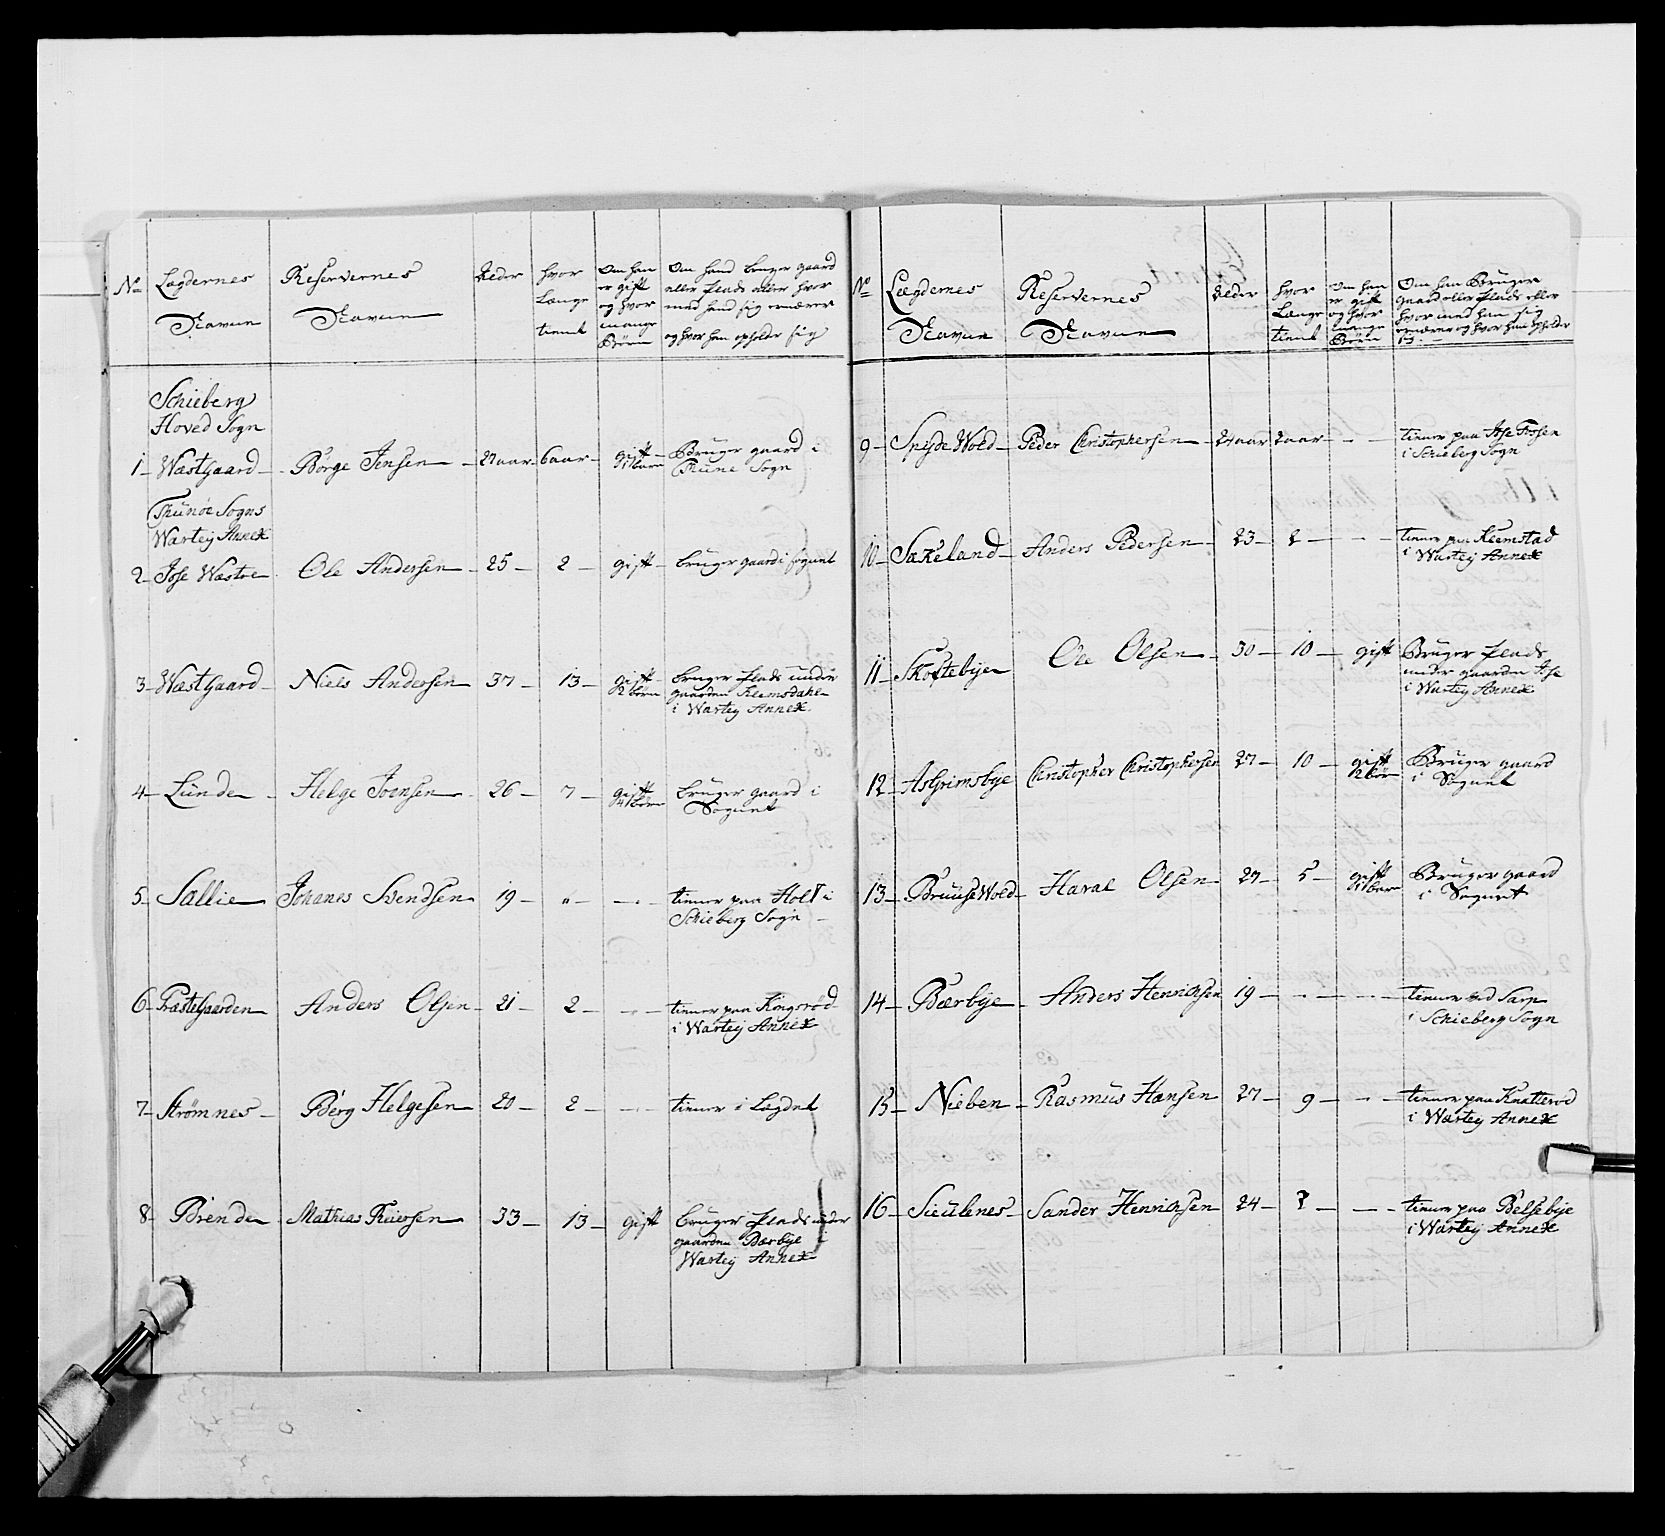 No
Lægdernes
Navne
Reservernes
Navne
Alder
hvor
Længe
tient
Om han
er gift
og hvor
mange
Børn
Om hand bruger gaard
eller Plads eller hvor
med hand sig ernærer
og hvor han opholder sig
Schieberg
Hoved Sogn
1 - Wæstgaard - Börge Jensen - 27 aar - 6 aar - gift - 1 barn Bruger gaard i
Rune Sogn
Thunöe Sogns
Warteij Annex
2 - Jose Wæstre Ole Andersen - 25 - 2 - gift - bruger gaard i sognet
3 - Wæstgaard - Niels Andersen 37 - 13 - gift - 2 börn bruger Plads under
gaarden Kleemsdahl
i Warteij Annex
4 - Lunde - Helge Joensen - 26 - 7 - gift - 4 börn bruger gaard i
Sognet
5 - Sallie - Johanes Svendsen 19 - " - - " - tiener paa Holt i
Schieberg Sogn
6 - Præstegaarden Anders Olsen - 21 - 2 - - " - tiener paa Kingsröd
i Warteij Annex
7 - Strömnes - Berg Helgesen 20 - 2 - - " - tiener i Lægdet
8 - Brende - Mathias 33 - 13 - gift bruger Plads under
gaarden Bærbye i
Warteij Annex
No
Lægdernes
Navne
Reservernes
Navne
Alder
hvor
Længe
tient
Om han
er gift
og hvor
mange
Börn
Om han Bruger
gaard eller Plads eller
hvor med han sig
ernærer og hvor han opholder
sig
9 - Spydevold - Peder Christophersen - 24 aar 2 aar - " - tiener paa
i Schieberg Sogn
10 - Sækeland - Anders Pedersen - 23 - 2 - - " - tiener paa Kleemstad
i Warteij Annex
11 - Skoftebye Ole Olsen - 30 - 10 - gift Bruger Plads
under gaarden
i Warteij Annex
12 - Asgrimsbye Christopher Christophersen 27 - 10 - gift 2 börn Bruger gaard
i Sognet
13 - Bruusevold - Haral Olsen - 27 - 5 - gift 1 barn Bruger gaard
i Sognet
14 - Bærbye - Anders Henrichsen 19 - " - - " - tiener ved Sarp
i Schieberg Sogn
15 - Nieben - Rasmus Hansen 27 - 9 - - " - tiener paa Knatterod
i Warteij Annex
16 - Sander Henrichsen 24 - - - tiener paa Belsebije
i Warteij Annex